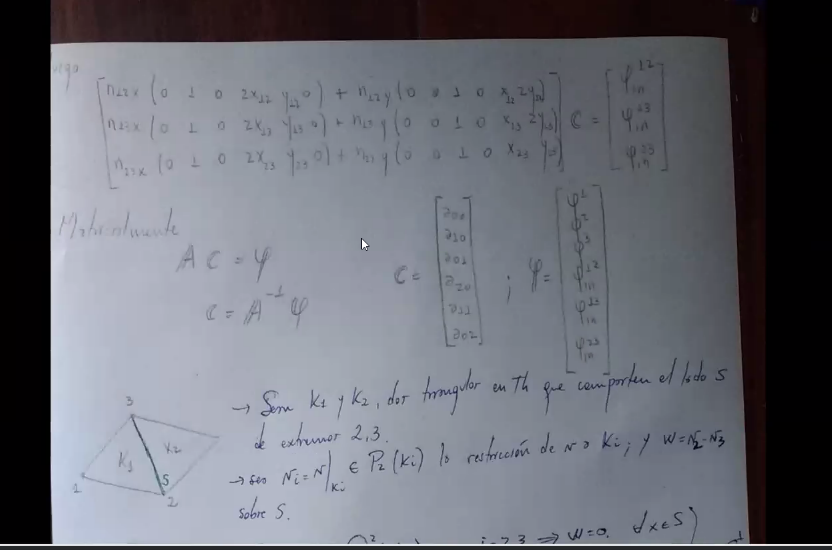 luego
n12x (0 1 0 2x12 y12 0) + n12y (0 0 1 0 x12 2y12)
n13x (0 1 0 2x13 y13 0) + n13y (0 0 1 0 x13 2y13) C = φ,n^12 φ,n^13 φ,n^23
n23x (0 1 0 2x23 y23 0) + n23y (0 0 1 0 x23 y23)
Matricialmente
A C = φ
C = A^-1 φ
C = [a00 a10 a01 a20 a11 a02] ; φ = [φ^1 φ^2 φ^3 φ,n^12 φ,n^13 φ,n^23]
3
K1 K2
1 S
2
→ Sean K1 y K2, dos triangulos en Th que comparten el lado S
de extremos 2,3.
→ sea Ni = N|Ki ∈ P2(Ki) la restricción de N a Ki; y W = N2-N3
sobre S.
⇒ W=0. ∀x∈S